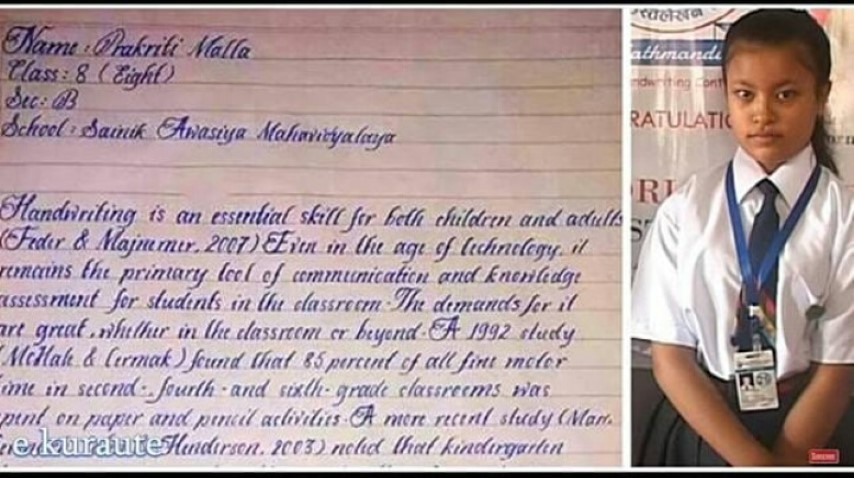 Name: Prakriti Malla
Class: 8 (Eight)
Sec: B
School: Sainik Awasiya Mahavidyalaya
Handwriting is an essential skill for both children and adults
(Feder & Majnemer, 2007) Even in the age of technology, it
remains the primary tool of communication and knowledge
assessment for students in the classroom. The demands for it
are great, whether in the classroom or beyond. A 1992 study
(McHale & Cermak) found that 85 percent of all fine motor
time in second-, fourth-and sixth-grade classrooms was
spent on paper and pencil activities. A more recent study (Marr,
Henderson, 2003) noted that kindergarten
e.kuraute
athmandu
ndwriting Cont
RATULATIO
Subscribe